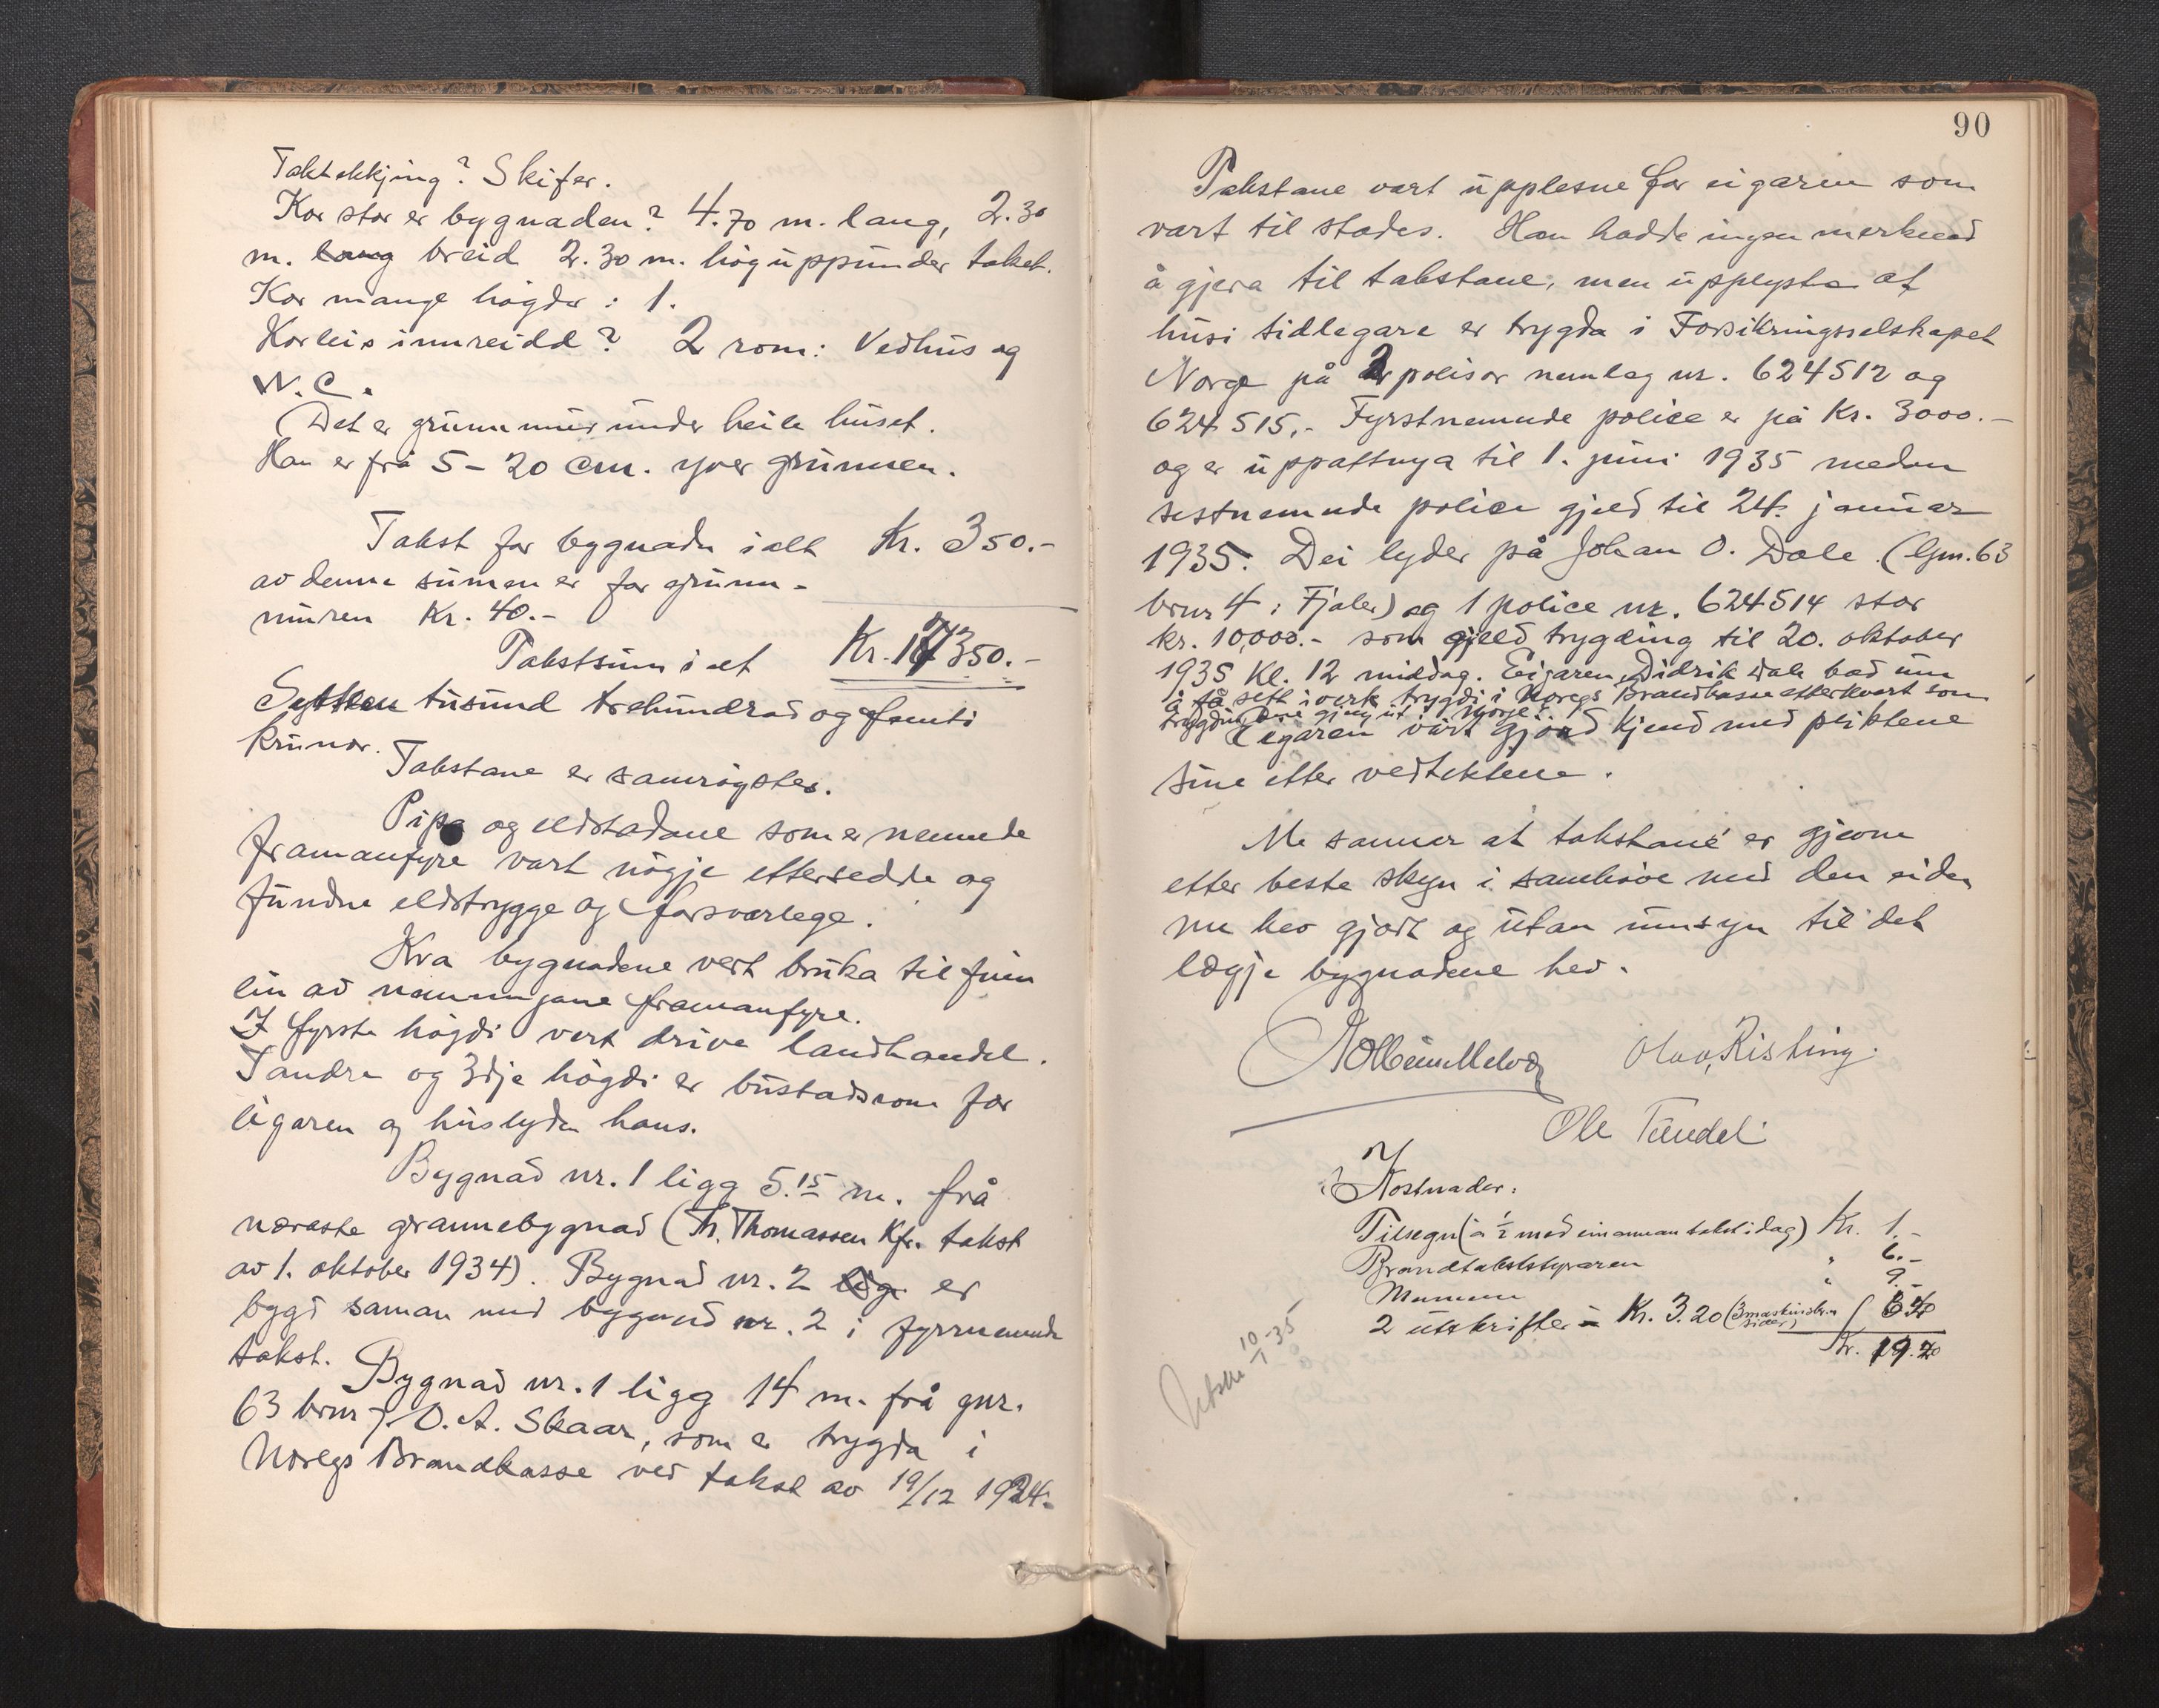 Taktekkjing? Skifer.
Kor stor er bygnaden? 4.70 m. lang, 2.30
m. lang breid 2.30 m. høg uppunder taket.
Kor mange høgder: 1.
Korleis innreidd? 2 rom: Vedhus og
W.C.
Det er grunnmur under heile huset.
Han er frå 5-20 cm. yver grunnen.
Takst for bygnaden ialt Kr. 350.-
av denne sumen er for grunn-
muren Kr. 40.-
Takstsum i alt Kr. 17350.-
Sytten tusund trehundrad og femti
krunor.
Takstane er samrøystes.
Pipa og eldstadane som er nemnde
framanfyre vart nøgje ettersedde og
fundne eldstrygge og forsvarlege.
Kva bygnadene vert bruka til finn
ein av nemningane framanfyre.
I fyrste høgdi vert drive landhandel.
I andre og 3dje høgdi er bustadsrom for
eigaren og huslyden hans.
Bygnad nr. 1 ligg 5.15 m. frå
næraste grannebygnad (Th. Thomassen Kfr. takst
av 1. oktober 1934). Bygnad nr. 2 lig er
bygd saman med bygnad nr. 2 i fyrrnemnde
takst.
Bygnad nr. 1 ligg 14 m. frå gnr.
63 brnr 7. O. A. Skaar, som er trygda i
Noregs Brandkasse ved takst av 19/12 1924.
90
Takstane vart upplesne for eigaren som
vart til stades. Han hadde ingen merknad
å gjera til takstane, men upplyste at
husi tidlegare er trygda i Forsikringsselskapet
Norge på 2 polisor nemleg nr. 624512 og
624515.- Fyrstnemnde police er på Kr. 3000.-
og er uppattnya til 1. juni 1935 medan
sestnemnde police gjeld til 24. januar
1935. Dei lyder på Johan O. Dale. (Gnr. 63
brnr 4 i Fjaler) og 1 police nr. 624514 stor
kr. 10,000.- som gjeld trygding til 20. oktober
1935 Kl. 12 middag. Eigaren, Didrik Dale bad um
å få sett i verk trygdi i Noregs Brandkasse etterkvart som
trygdingane gjeng ut i "Norge".
Eigaren vart gjord kjend med pliktene
sine etter vedtektene.
Me sannar at takstane er gjevne
etter beste skyn i samhøve med den eiden
me hev gjort og utan umsyn til det
lægje bygnadene hev.
Olav Risting.
Ole Tundel
Kostnader:
Tilsegn (à ½ med ein annan takst idag) Kr. 1.-
Brandtakststyraren " 6.-
Mennene " 9.-
2 utskrifter à Kr. 3.20 (3 maskinskr. sider) 6.40
Kr. 19.20
10/1-35